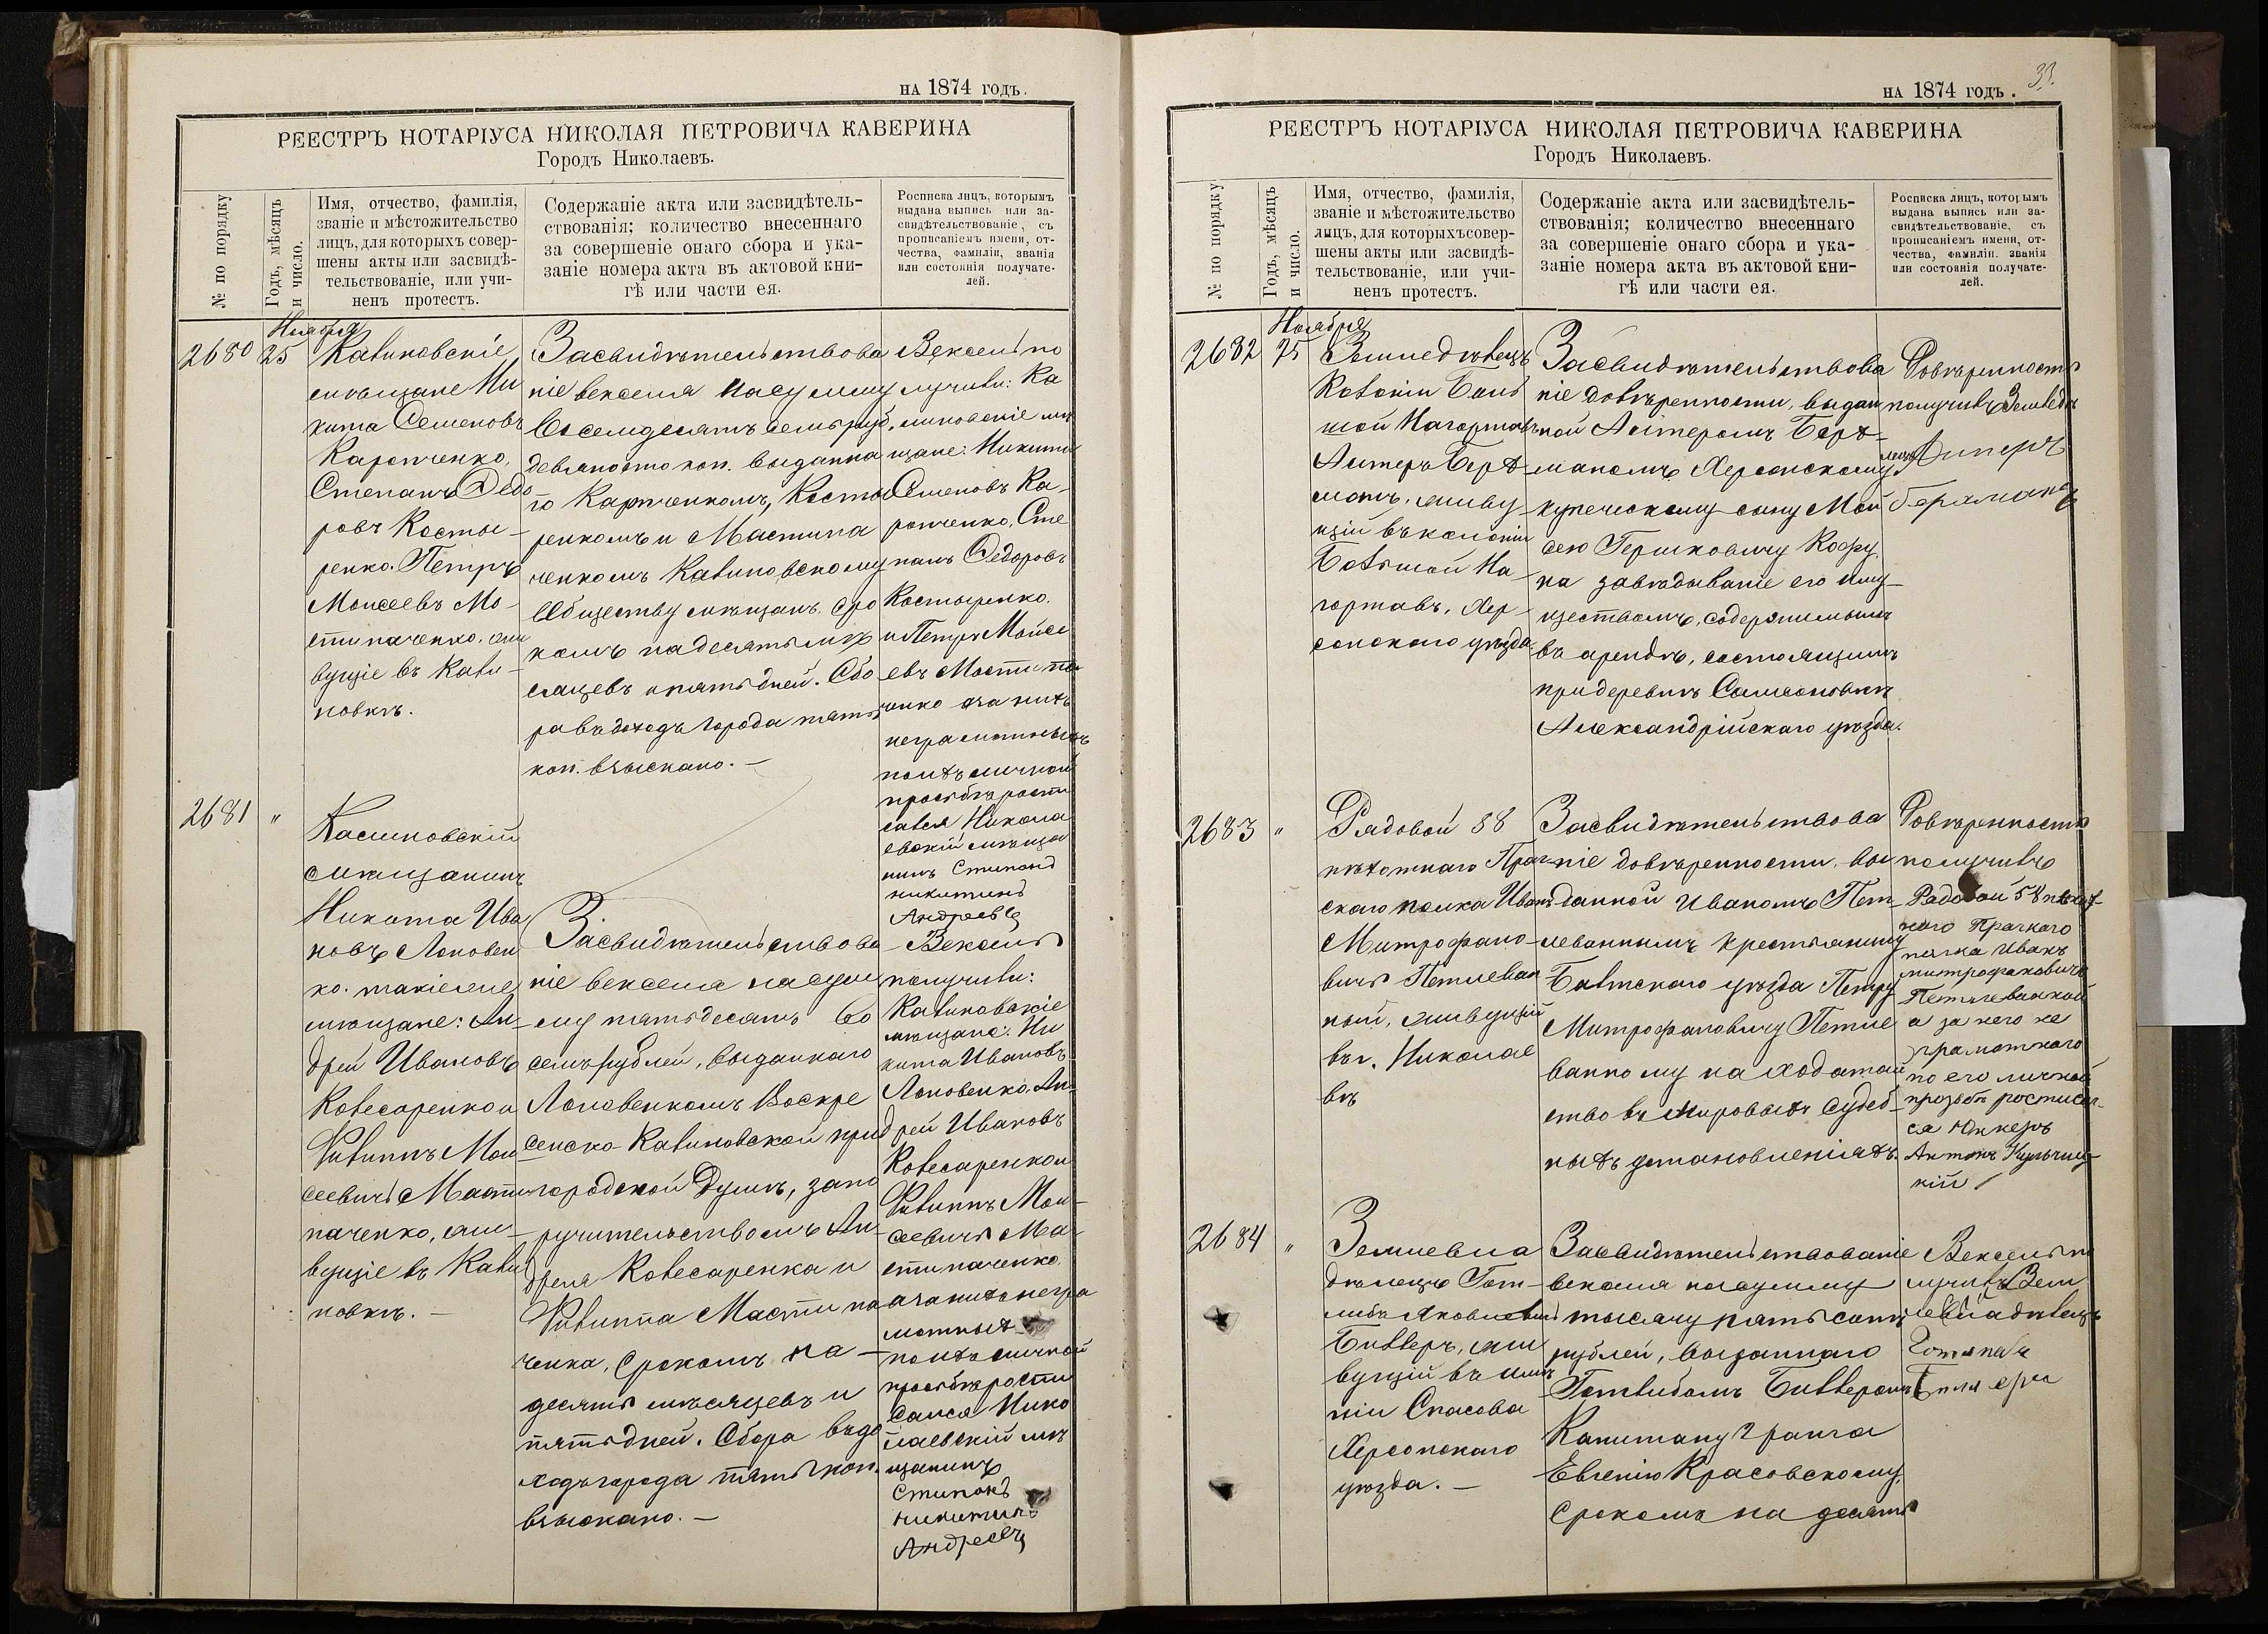 на 1874 годъ.
РЕЕСТРЪ НОТАРІУСА НИКОЛАЯ ПЕТРОВИЧА КАВЕРИНА
Городъ Николаевъ.
№ по порядку
Годъ, мѣсяцъ
и число.
Имя, отчество, фамилія,
званіе и мѣстожительство
лицъ, для которыхъ совер-
шены акты или засвидѣ-
тельствованіе, или учи-
ненъ протестъ.
Содержаніе акта или засвидѣтель-
ствованія; количество внесеннаго
за совершеніе онаго сбора и ука-
заніе номера акта въ актовой кни-
гѣ или части ея.
Росписка лицъ, которымъ
выдана выпись или за-
свидѣтельствованіе, съ
прописаніемъ имени, от-
чества, фамиліи, званія
или состоянія получате-
лей.
2680
Ноября
25
Калиновскіе
мѣщане Ни
кита Семеновъ
Карпченко,
Степанъ Федо
ровъ Косты-
ренко. Петръ
Моисеевъ Ма-
стипаченко. жи
вущіе въ Кали-
новкѣ.
Засвидѣтельствова
ніе векселя на сумму
восемдесятъ семь руб.
девяносто коп. выданна
го Карпченкомъ, Косты
ренкомъ и Мастипа
ченкомъ Калиновскому
Обществу мѣщанъ. Сро
комъ на десять мѣ
сяцевъ и пять дней. Сбо
ра въ доходъ города пять
коп. взыскано. —
Вексель по
лучили: Ка
линовскіе мѣ
щане: Никита
Семеновъ Ка-
рпченко, Сте
панъ Федоровъ
Костыренко.
и Петръ Мойсе
евъ Мастипа
ченко а за нихъ
неграмотныхъ
по ихъ личной
просьбѣ роспи
сался Никола
евскій мѣща
нинъ Стипанъ
никитинъ
Андреевъ
2681
"
Калиновскій
мѣщанинъ
Никита Ива
новъ Лоновен
ко. такіеже
мѣщане: Ан-
дрей Ивановъ
Ковесаренко и
Филиппъ Мои
сеевичъ Масти
паченко, жи-
вущіе въ Кали
новкѣ. —
З.
Засвидѣтельствова
ніе векселя на сум
му пятьдесятъ во
семь рублей, выданнаго
Лоновенкомъ Воскре
сенско-Калиновской при
городской Думѣ, за по
ручительствомъ Ан-
дрея Ковесаренка и
Филиппа Мастипа
ченка, срокомъ на
десять мѣсяцевъ и
пять дней. Сбора въ до
ходъ города пять коп.
взыскано. —
Вексель
получили:
Калиновскіе
мѣщане: Ни
кита Ивановъ
Лоновенко, Ан-
дрей Ивановъ
Ковесаренко и
Филиппъ Мои-
сеевичъ Ма-
стипаченко
а за нихъ негра
мотныхъ
по ихъ личной
просьбѣ роспи
сался Нико
лаевскій мѣ
щанинъ
Стипанъ
никитинъ
Андреевъ
33.
на 1874 годъ.
РЕЕСТРЪ НОТАРІУСА НИКОЛАЯ ПЕТРОВИЧА КАВЕРИНА
Городъ Николаевъ.
№ по порядку
Годъ, мѣсяцъ
и число.
Имя, отчество, фамилія,
званіе и мѣстожительство
лицъ, для которыхъ совер-
шены акты или засвидѣ-
тельствованіе, или учи-
ненъ протестъ.
Содержаніе акта или засвидѣтель-
ствованія; количество внесеннаго
за совершеніе онаго сбора и ука-
заніе номера акта въ актовой кни-
гѣ или части ея.
Росписка лицъ, которымъ
выдана выпись или за-
свидѣтельствованіе, съ
прописаніемъ имени, от-
чества, фамиліи, званія
или состоянія получате-
лей.
2682
Ноября
25
Земледѣлецъ
Колоніи Боль
шой Нагортавъ
Лейзеръ Берх-
манъ, живу-
щій въ колоніи
Большой На-
гортавъ, Хер-
сонскаго уѣзда.
Засвидѣтельствова
ніе довѣренности, выдан
ной Берх-
маномъ Херсонскому
купеческому сыну Мой
сею Гершковичу Кофу,
на завѣдываніе его иму-
ществомъ, содержимымъ
въ арендѣ, состоящимъ
при деревнѣ
Александрійскаго уѣзда.
Довѣренность
получилъ Земледѣ
лецъ
Берхманъ
2683
"
Рядовой 58
пѣхотнаго Праг-
скаго полка Иванъ
Митрофано-
вичъ Петлеван
ный, живущій
въ г. Николае
вѣ
Засвидѣтельствова
ніе довѣренности, вы
данной Иваномъ Пет-
леваннымъ крестьянину
Балтскаго уѣзда Петру
Митрофановичу Петле
ванному на ходатай
ство въ мировыхъ судеб-
ныхъ установленіяхъ.
Довѣренность
получилъ
Радовой 58 пѣхот
наго Пражкаго
полка Иванъ
митрофановичъ
Петлеванной
а за него не
грамотнаго
по его личной
прозьбѣ росписал-
ся Юнкеръ
Антонъ Кульчиц-
кій
2684
"
Землевла
дѣлецъ Гот-
либъ Яковлевичъ
Биллеръ, жи
вущій въ имѣ
ніи Спасова
Херсонскаго
уѣзда. —
Засвидѣтельствованіе
векселя на сумму
тысячу пятьсотъ
рублей, выданнаго
Готлибомъ Биллеромъ
Капитану 2 ранга
Евгенію Красовскому,
срокомъ на десять
Вексель по
лучилъ Зем
левладѣлецъ